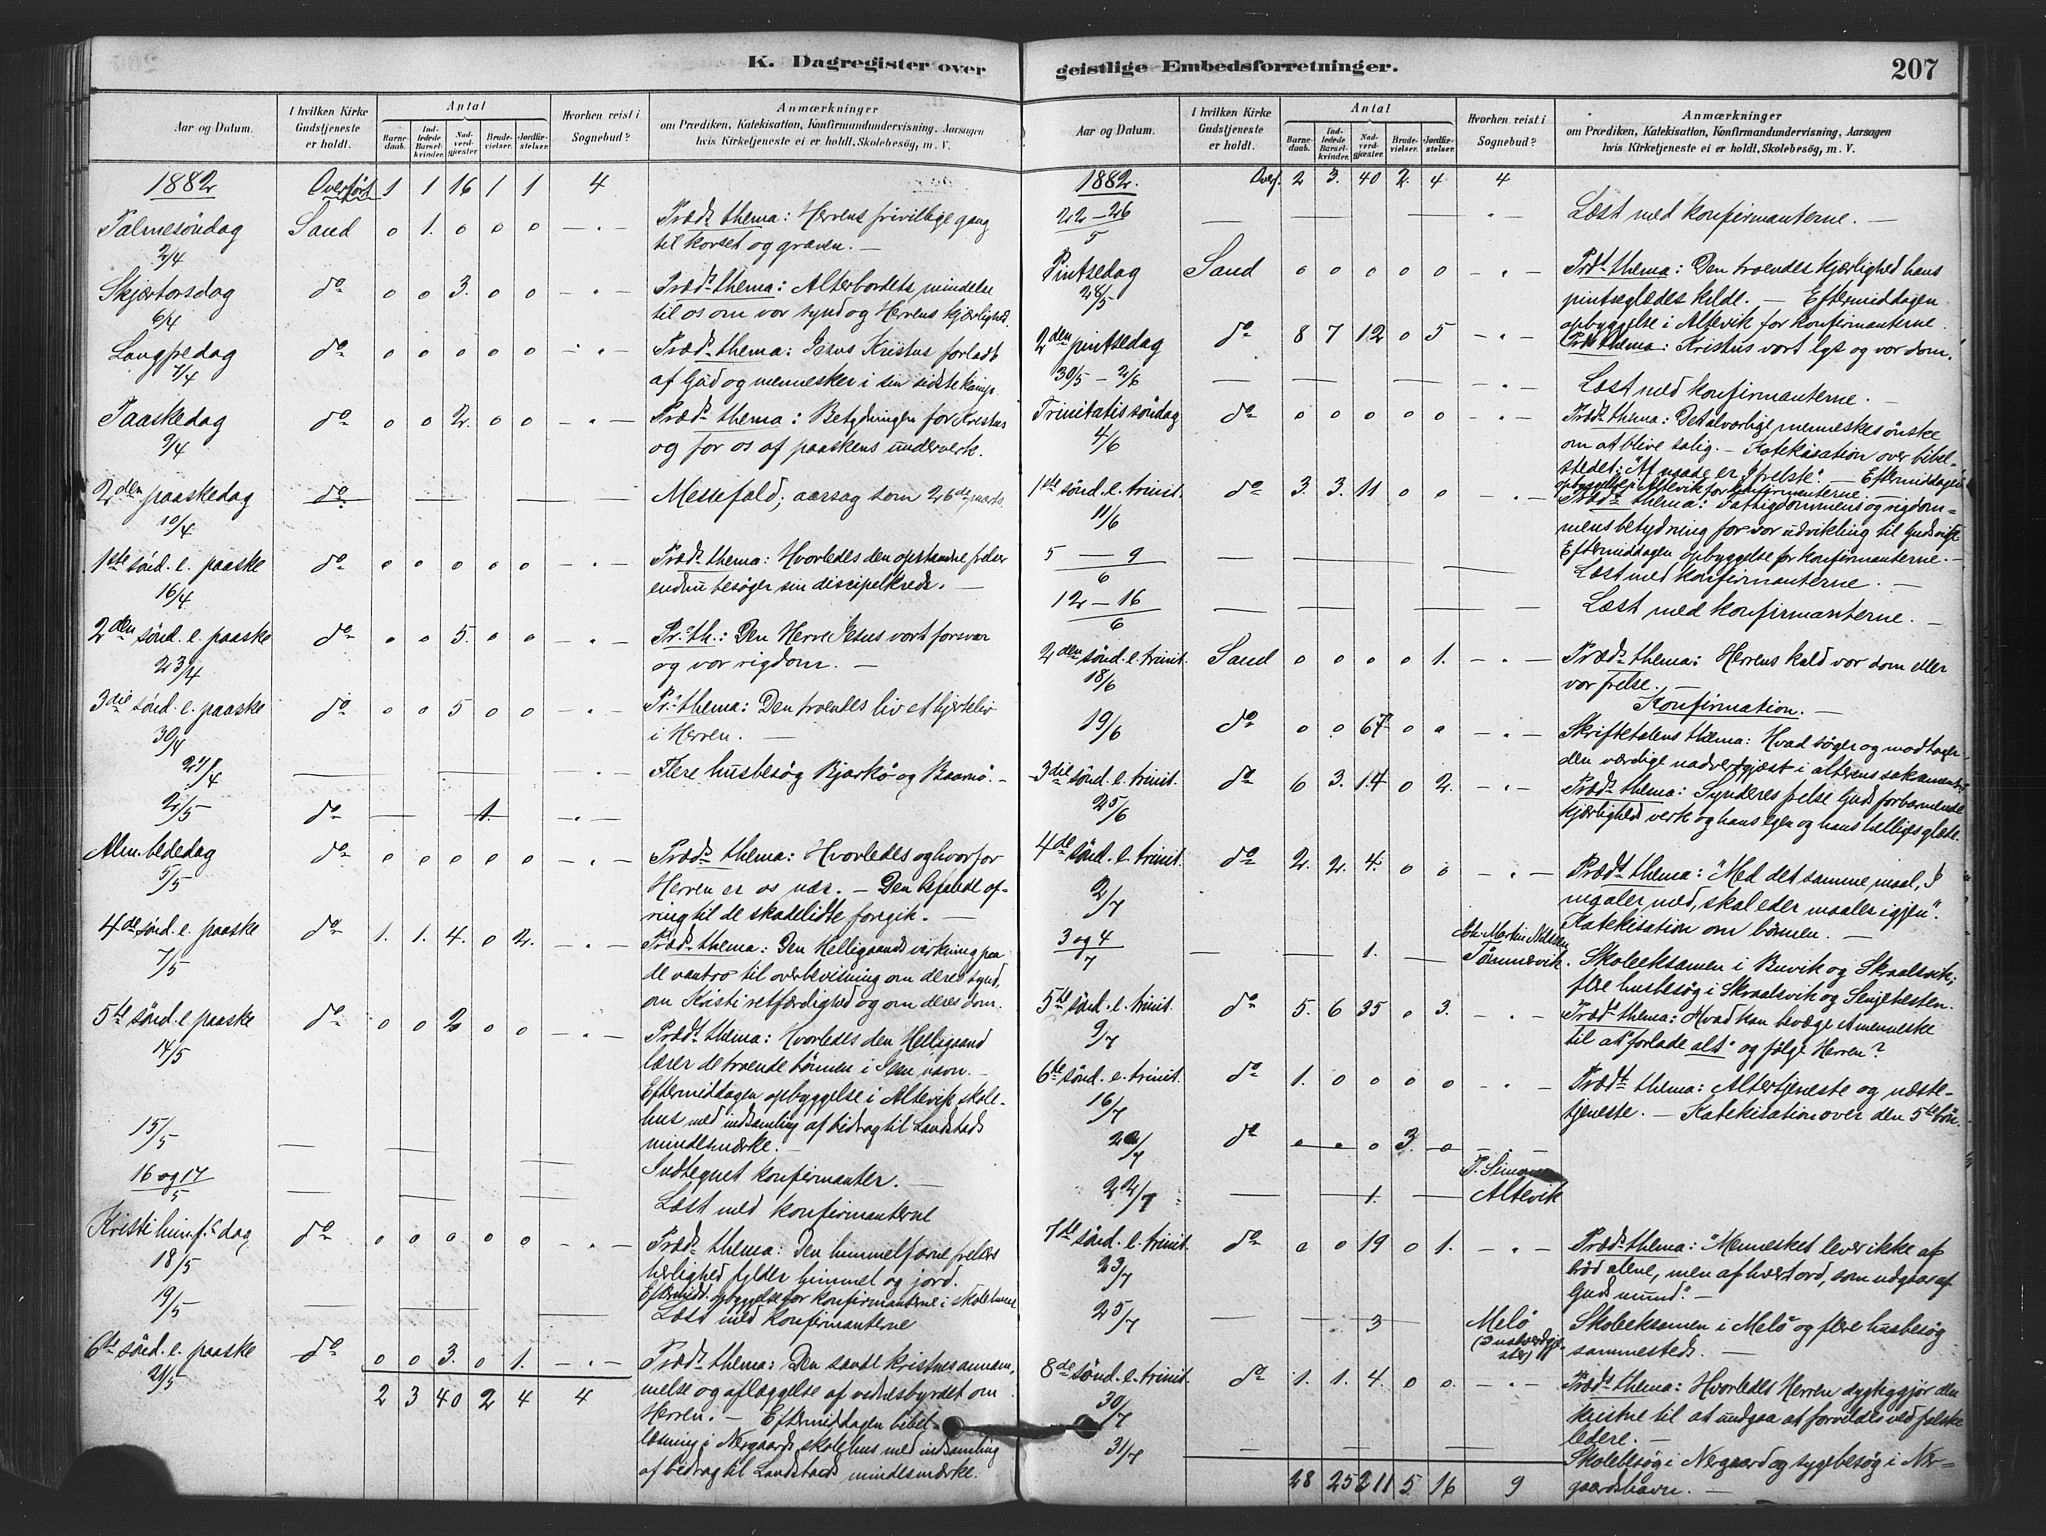 K. Dagregister over
Aar og Datum.
I hvilken Kirke Gudstjeneste er holdt.
Antal
Barnedaab.
Indledede Barselkvinder.
Nadverdgjæster.
Brudevielser.
Jordfæstelser.
Hvorhen reist i Sognebud?
Anmærkninger
om Prædiken, Katekisation, Konfirmandundervisning, Aarsagen
hvis Kirketjeneste ei er holdt, Skolebesøg, m. V.
1882 Overført 1 1 16 1 1 4
Palmesøndag Sand 0 1. 0 0 0 - " - Præds thema: Herrens frivillige gang
2/4 til korset og graven. —
Skjærtorsdag do 0 0 3. 0 0 - " - Præds thema: Alterbordets mindelse
6/4 til os om vor synd og Herrens kjærlighed.
Langfredag do 0 0 0 0 0 - " - Præds thema: Jesus Kristus forladt
7/4 af Gud og mennesker i sin sidste kamp.
Paaskedag do 0 0 2. 0 0 - " - Præds thema: Betydningen for Kristus
9/4 og for os af paaskens underverk.
2den paaskedag do — — — Messefald; aarsag som 26de marts.
10/4
1ste sønd. e. paaske do 0 0 0 0 0 - " - Præds thema: Hvorledes den opstandne frelser
16/4 endnu besøger sin discipelkreds. —
2den sønd. e. paaske do 0 0 5. 0 0 - " - Pr. th.: Den Herre Jesus vort forsvar
23/4 og vor rigdom. —
3die sønd. e. paaske do 0 0 5 0 0 - " - Pr. thema: Den troendes liv et hjerteliv
30/4 i Herren. —
27/4 — — — Flere husbesøg Bjarkø og
2/5 do — — 1. — - " -
Alm. bededag do 0 0 0 0 0 - " - Præds thema: Hvorledes og hvorfor
5/5 Herren er os nær. — Den befalede of-
ring til de skadelidte foregik. —
4de sønd. e. paaske do 1. 1. 4. 0 2. - " - Præds thema: Den Helligaands virkning paa
7/5 de vantro til overbevisning om deres synd,
om Kristi retfærdighed og om deres dom.
5te sønd. e. paaske do 0 0 2 0 0 - " - Præds thema: Hvorledes den Helligaand
14/5 lærer de troende bønnen i Jesu navn. —
Eftermiddagen opbyggelse i Altevik skole-
hus med indsamling af bidrag til Landstads
mindesmærke. —
15/5 — — — Indtegnet konfirmanter. —
16 og 17/5 — — — Læst med konfirmanterne
Kristi himf.s dag do 0 0 0 0 0 - " - Præds thema: Den himmelfarne frelsers
18/5 herlighed fylder himmel og jord.
Eftermidd. opbyggelse for konfirmanterne i skolehuset
19/5 — — — Læst med konfirmanterne
6te sønd. e. paaske do 0 0 3. 0 1. - " - Præds thema: Den sande kristnes annam-
21/5 melse og aflæggelse af vidnesbyrdet om
2 3 40 2 4 4 Herren. — Eftermiddagen bibel-
læsning i Nergaards skolehus med indsamling
af bidrag til Landstads mindesmærke.
geistlige Embedsforretninger. 207
Aar og Datum.
I hvilken Kirke Gudstjeneste er holdt.
Antal
Barnedaab.
Indledede Barselkvinder.
Nadverdgjæster.
Brudevielser.
Jordfæstelser.
Hvorhen reist i Sognebud?
Anmærkninger
om Prædiken, Katekisation, Konfirmandundervisning, Aarsagen
hvis Kirketjeneste ei er holdt, Skolebesøg, m. V.
1882. Overf. 2 3. 40 2. 4 4
22-26/5 — — — - " - Læst med konfirmanterne. —
Pintsedag Sand 0 0 0 0 0 - " - Præds thema: Den troendes kjærlighed hans
28/5 pintseglædes kilde. — Eftermiddagen
opbyggelse i Altevik for konfirmanterne.
2den pintsedag do 8 7 12 0 5 - " - Præds thema: Kristus vort lys og vor dom.
30/5 - 2/6 — — — - " - Læst med konfirmanterne. —
Trinitatis søndag do 0 0 0 0 0 - " - Præds thema: Det alvorlige menneskes ønske
4/6 om at blive salig. - Katekisation over bibel-
stedet: "Af naade er I frelste". — Eftermiddagen
opbyggelse i Altevik for konfirmanterne. —
1ste sønd. e. trinit. do 3. 3. 11 0 0 - " - Præds thema: Fattigdommens og rigdom-
11/6 mens betydning for vor udvikling til Guds rige
Eftermiddagen opbyggelse for konfirmanterne. —
5 — 9/6 — — — Læst med konfirmanterne. —
12 - 16/6 — — — Læst med konfirmanterne. —
2den sønd. e. trinit. Sand 0 0 0 0 1. - " - Præds thema: Herrens kald vor dom eller
18/6 vor frelse. —
Konfirmation. —
19/6 do 0 0 67 0 0 - " - Skriftetalens thema: Hvad søger og modtager
den værdige nadverdgjæst i alterens sakamente?
3die sønd. e. trinit. do 6 3. 14 0 2. - " - Præds thema: Synderes frelse Guds forbarmende
25/6 kjærligheds verk og hans egen og hans helliges glæde.
4de sønd. e. trinit. do 2. 2. 4. 0 0 - " - Præds thema: "Med det samme maal, I
2/7 maaler med, skal eder maales igjen".
Katekisation om bønnen. —
3 og 4/7 — — 1. — Martin Nilssen Tømmervik. Skoleeksamen i Buvik og Skraalsvik;
flere husbesøg i Skraalsvik og Senjehesten.
5te sønd. e. trinit. do 5. 6 35 0 3. - " - Præds thema: Hvad kan bevæge et menneske
9/7 til at "forlade alt" og følge Herren?
6te sønd. e. trinit. do 1. 0 0 0 0 - " - Præds thema: Altertjeneste og næste-
16/7 tjeneste. — Katekisation over den 5te bøn.
20/7 do 0 0 0 3. 0 - " -
22/7 — — 1. — Altevik
7de sønd. e. trinit. do 0 0 19 0 1. - " - Præds thema: "Mennesket lever ikke af
23/7 brød alene, men af hvert ord, som udgaar af
Guds mund". —
25/7 — 3 — Melø (3 nadverdgjæ-ster) Skoleeksamen i Melø og flere husbesøg
sammesteds. —
8de sønd. e. trinit. do 1. 1. 4. 0 0. - " - Præds thema: Hvorledes Herren dygtiggjør den
30/7 kristne til at undgaa at forvildes ved falske
lærere. —
31/7 — — — Skolebesøg i Nergaard og sygebesøg i Ner-
28 25 211 5 16 9 gaardshavn. —